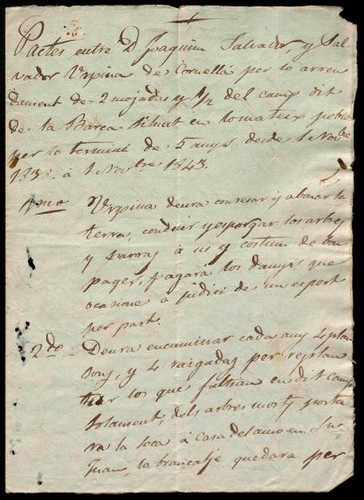 Pactes entre Dn Joaquim Salvador, y Sal-
vador Urpina de Cornellá per lo arren-
dament de 2 mojadas y 1/2 del camp dit
de la Barca situat en lo mateix poble
per lo termini de 5 anys desde 1 Nobre
1838 á 1 Novbre 1843.
Urpina deura conrear y abonar la
terra, conduir y esporgar los arbres
y parras á us y costum de bon
pages, pagará los danys que
ocasione á judici de un espert
per part.
2do Deura encaminar cada any 4 plan-
sons, y 4 raigadas per replan-
tar los que faltian en dit camp
dels arbres morts porta-
ra la soca á casa del amo en
la brancatje quedara per